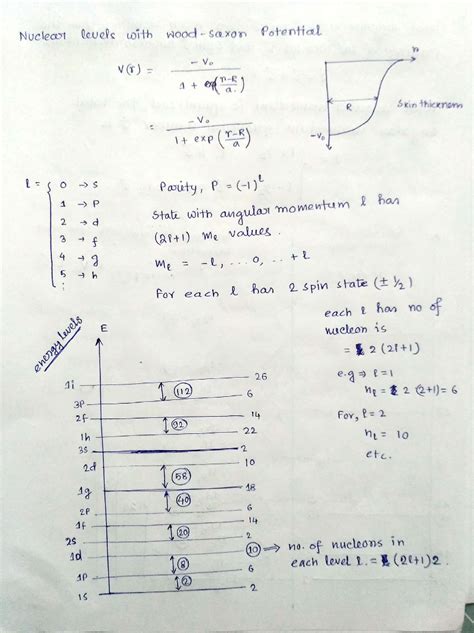 Nuclear levels with wood-saxon Potential
V(r) = -V₀ / 1 + exp(r-R/a.)
= -V₀ / 1 + exp (r-R/a)
r
R
Skin thickness
-V₀
l = { 0 → s
1 → P
2 → d
3 → f
4 → g
5 → h
⋮
Parity, P = (-1)^l
State with angular momentum l has
(2l+1) m_l values.
m_l = -l, ... 0, .. +l
For each l has 2 spin state (± ½)
each l has no of
nucleon is
= 2 (2l+1)
e.g ⇒ l=1
n_l = 2 (2+1) = 6
For, l = 2
n_l = 10
etc.
energy levels
E
1i 26
(112)
3P 6
2f 14
(92)
1h 22
3s 2
2d 10
(58)
1g 18
(40)
2P 6
1f 14
(20)
2s 2
1d (10) → no. of nucleons in
each level l. = (2l+1)2.
(8)
1P 6
(2)
1s 2